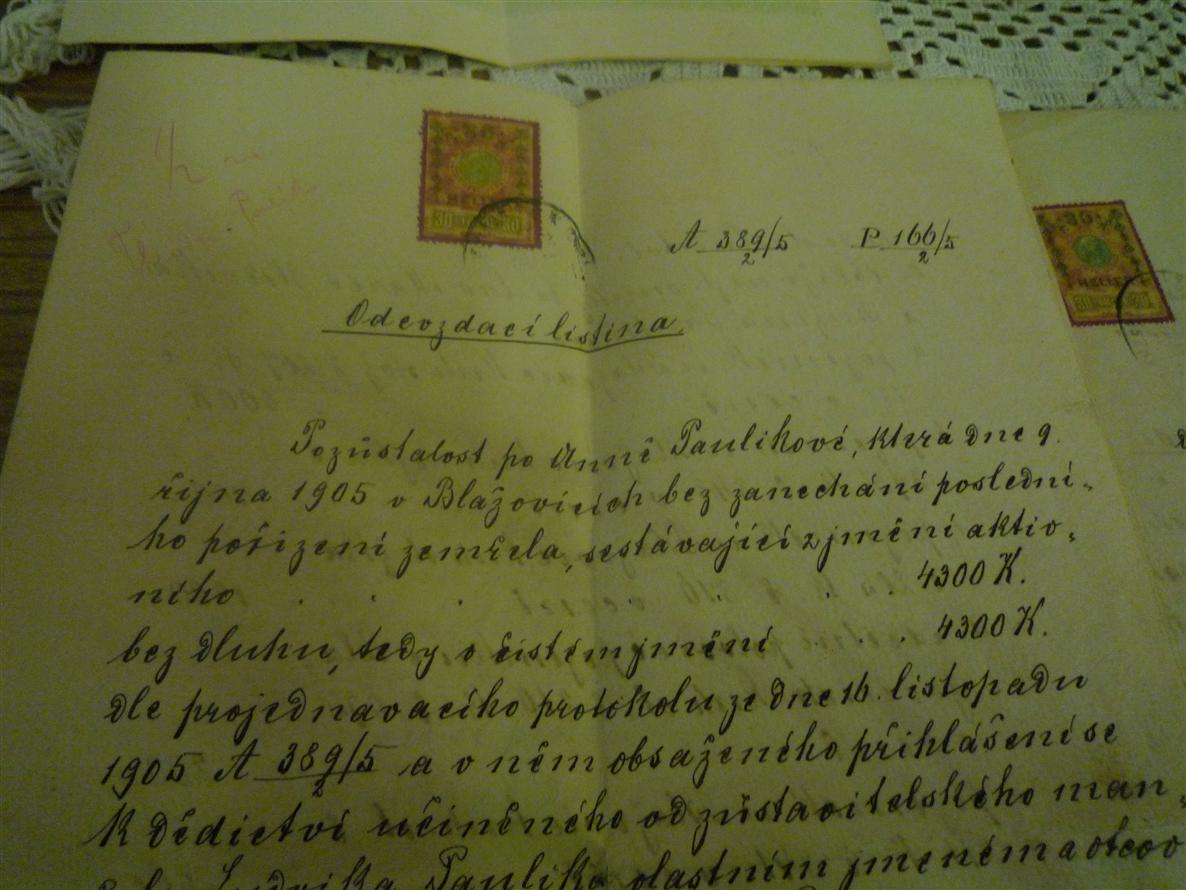 30
HELLER
A 389/5 2 P 166/5 2
30
HELLER
Odevzdací listina.
Pozůstalost po Anně Paulikové, která dne 9.
října 1905 v Blažovicích bez zanechání poslední-
ho pořízení zemřela, sestávající z jmění aktiv-
ního . . . . . 4300 K.
bez dluhu, tedy v čistém jmění . . . 4300 K.
dle projednavacího protokolu ze dne 16. listopadu
1905 A 389/5 2 a v něm obsaženého přihlášení se
k dědictví učiněného od zůstavitelského man-
Ludvíka Paulika vlastním jménem a otcov